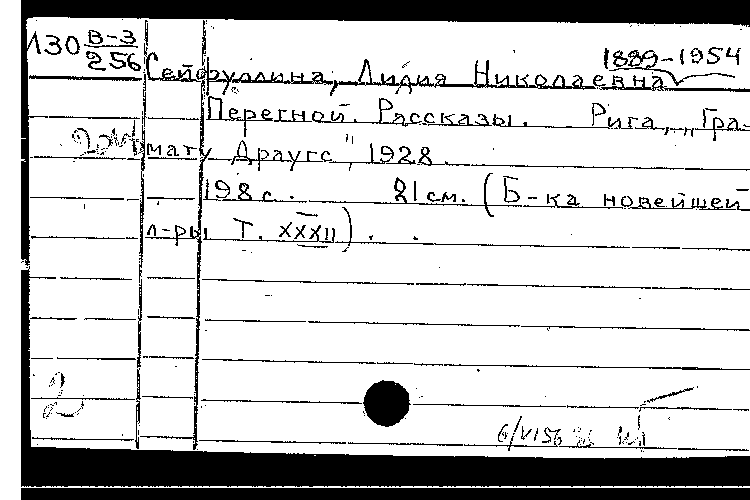 Л30 В-3/256
1889-1954
Сейфуллина, Лидия Николаевна
Перегной. Рассказы. Рига, „Гра-
мату Драугс", 1928.
198 с. 21 см. (Б-ка новейшей
л-ры Т. XXXII).
2
6/VI56